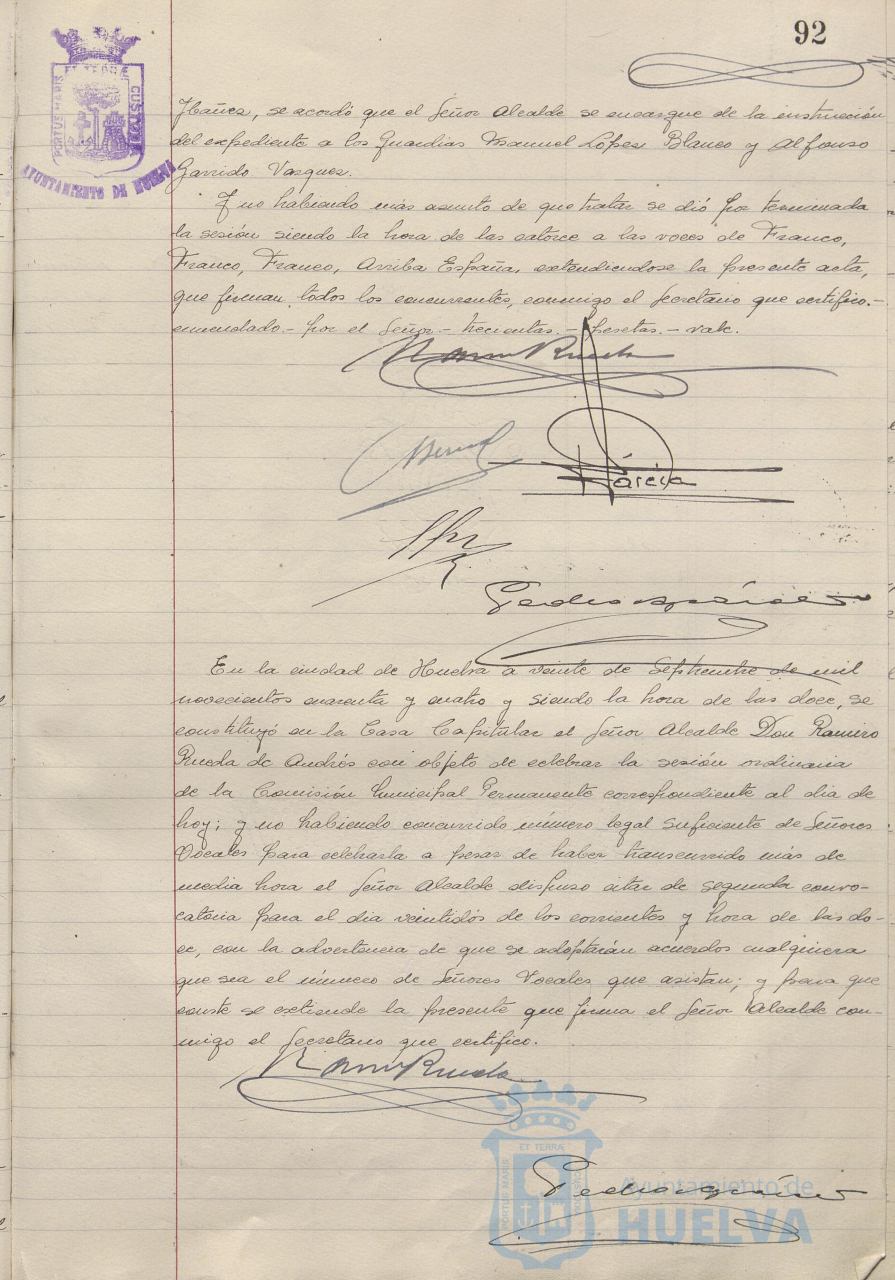 92
ET TERRÆ
PORTUS MARIS
CUSTODIA
AYUNTAMIENTO DE HUELVA
Ybañez, se acordó que el Señor Alcalde se encargue de la instrucción
del expediente a los Guardias Manuel López Blanco y Alfonso
Garrido Vazquez.
Y no habiendo más asunto de que tratar se dió por terminada
la sesión siendo la hora de las catorce a las voces de Franco,
Franco, Franco, Arriba España, extendiendose la presente acta,
que firman todos los concurrentes, conmigo el Secretario que certifico.-
enmendado.- por el Señor.- trecientas.- pesetas.- vale.
Ramiro Rueda
García
En la ciudad de Huelva a veinte de Septiembre de mil
novecientos cuarenta y cuatro y siendo la hora de las doce, se
constituyó en la Casa Capitular el Señor Alcalde Don Ramiro
Rueda de Andrés con objeto de celebrar la sesión ordinaria
de la Comisión Municipal Permanente correspondiente al dia de
hoy; y no habiendo concurrido número legal suficiente de Señores
Vocales para celebrarla a pesar de haber transcurrido más de
media hora el Señor Alcalde dispuso citar de segunda convo-
catoria para el dia veintidós de los corrientes y hora de las do-
ce, con la advertencia de que se adoptarán acuerdos cualquiera
que sea el número de Señores Vocales que asistan; y para que
conste se extiende la presente que firma el Señor Alcalde con-
migo el Secretario que certifico.
Ramiro Rueda
ET TERRÆ
PORTUS MARIS
Ayuntamiento de
HUELVA